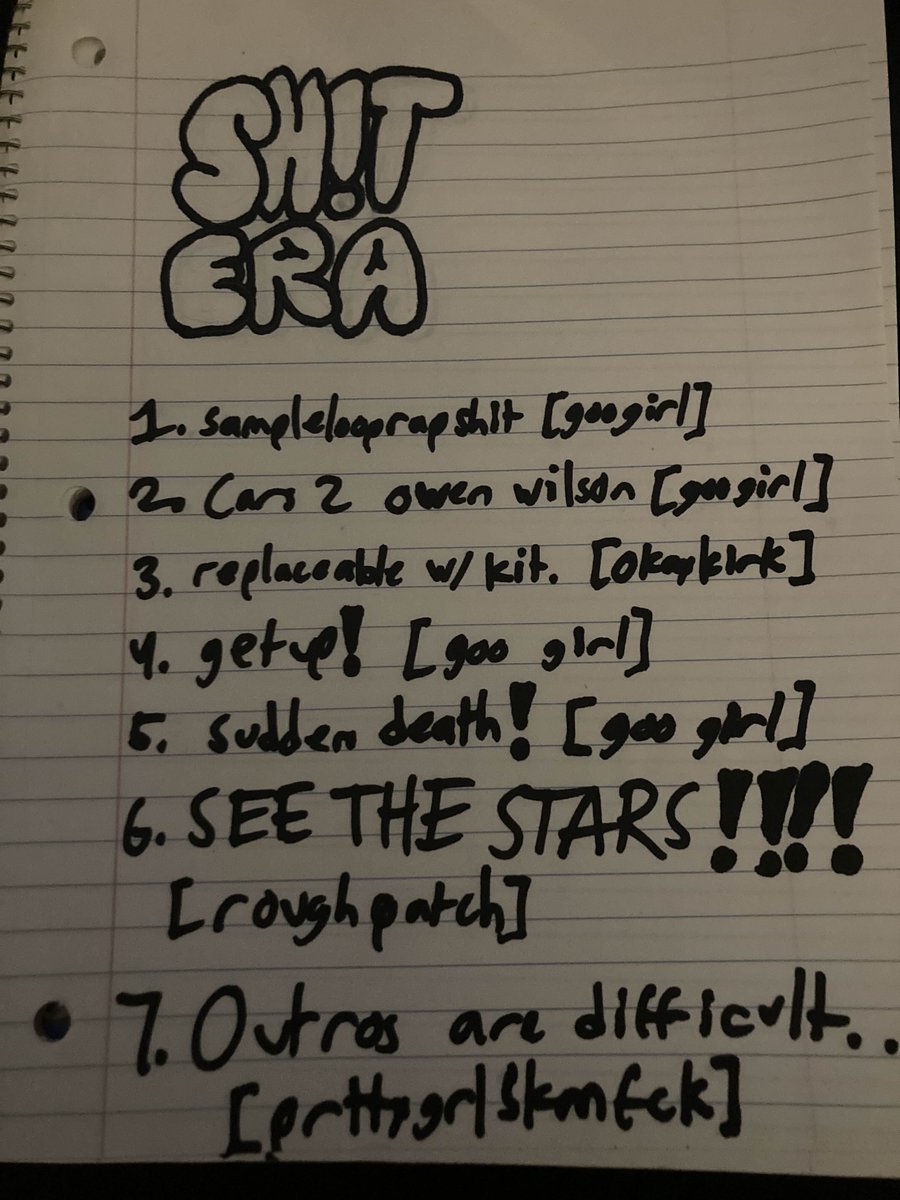 SH!T
ERA
1. samplelooprapshit [googirl]
2. Cars 2 owen wilson [googirl]
3. replaceable w/ kit. [okaykink]
4. get up! [goo girl]
5. sudden death! [goo girl]
6. SEE THE STARS!!!!
[roughpatch]
7. Outros are difficult..